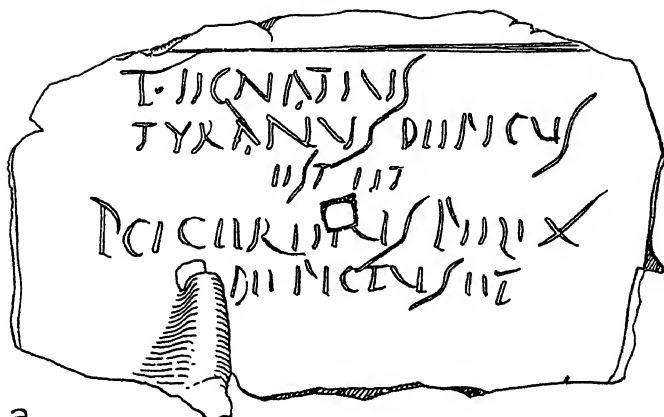 T·IIGNATIVS
TYRANVS DIIFICVS
IIST IIT
P CICIIRIIIVS FIILIX
DIIFICTVS IIT